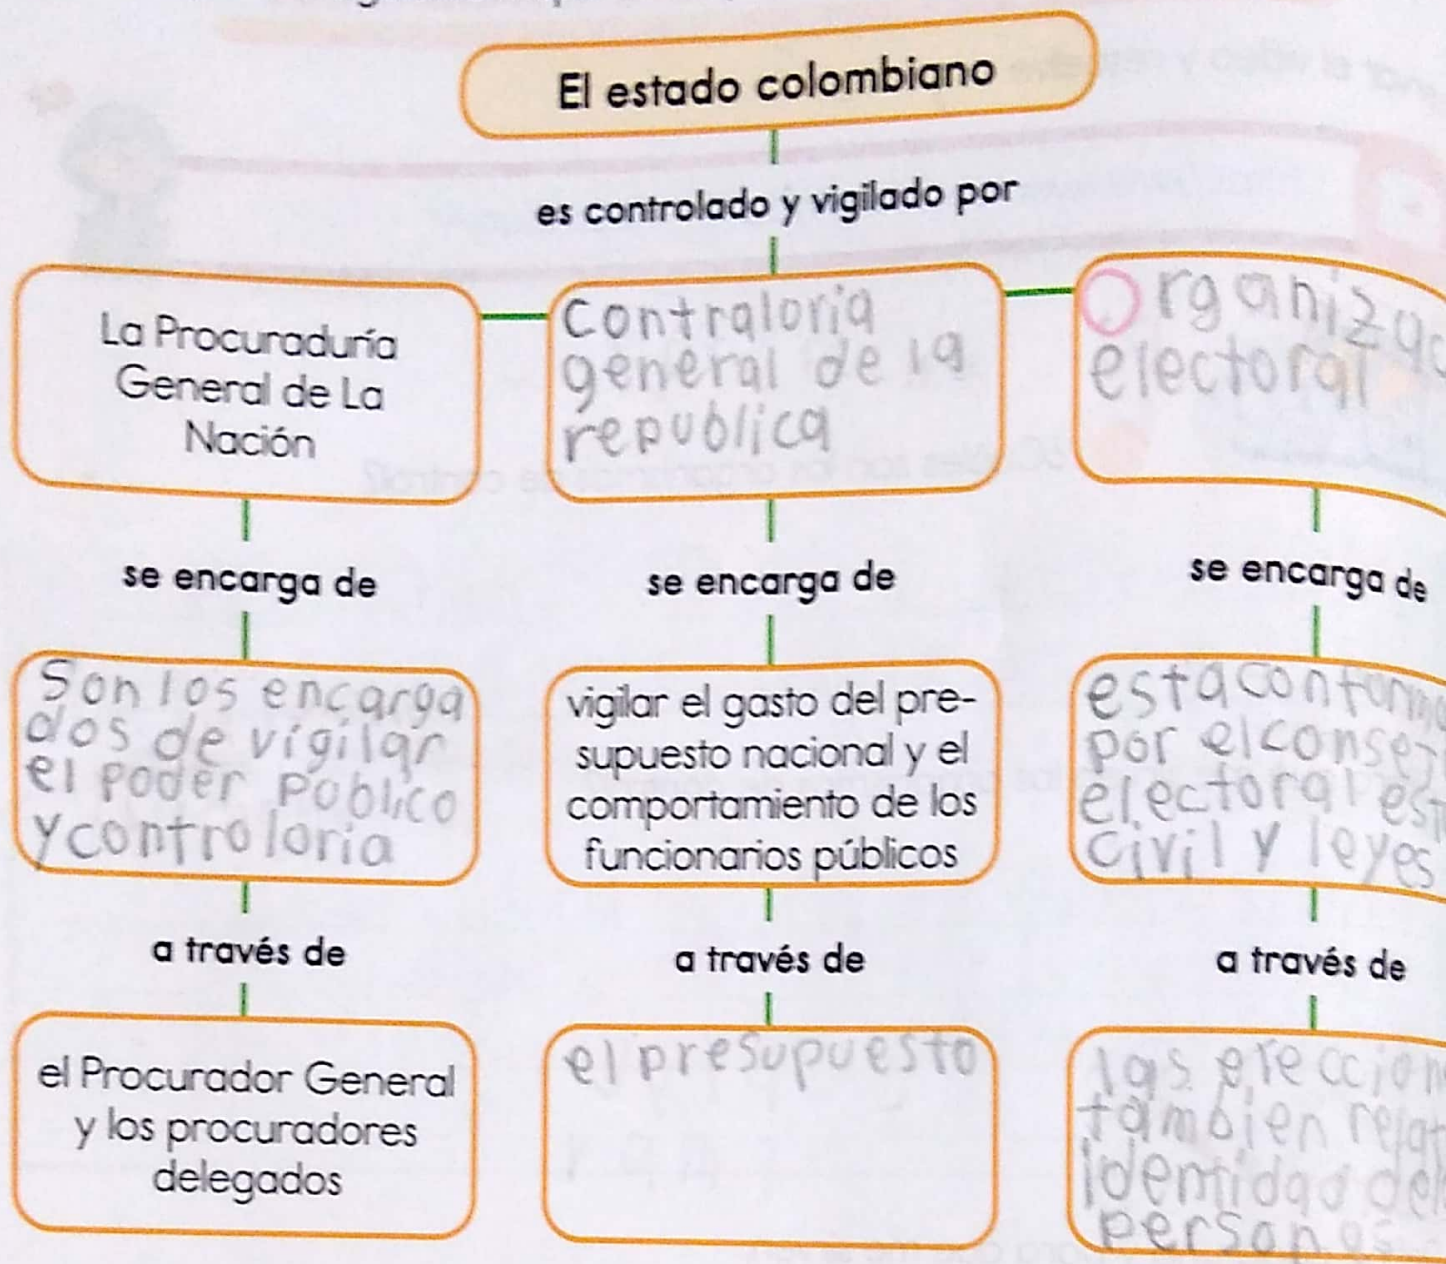 El estado colombiano
es controlado y vigilado por
La Procuraduría
General de La
Nación
Contraloria
general de la
republica
Organizac
electoral
se encarga de
se encarga de
se encarga de
Son los encarga
dos de vigilar
el poder público
y controloria
vigilar el gasto del pre-
supuesto nacional y el
comportamiento de los
funcionarios públicos
esta conforma
por el consej
electoral est
civil y leyes
a través de
a través de
a través de
el Procurador General
y los procuradores
delegados
el presupuesto
las eleccion
tambien relat
identidad de
personas